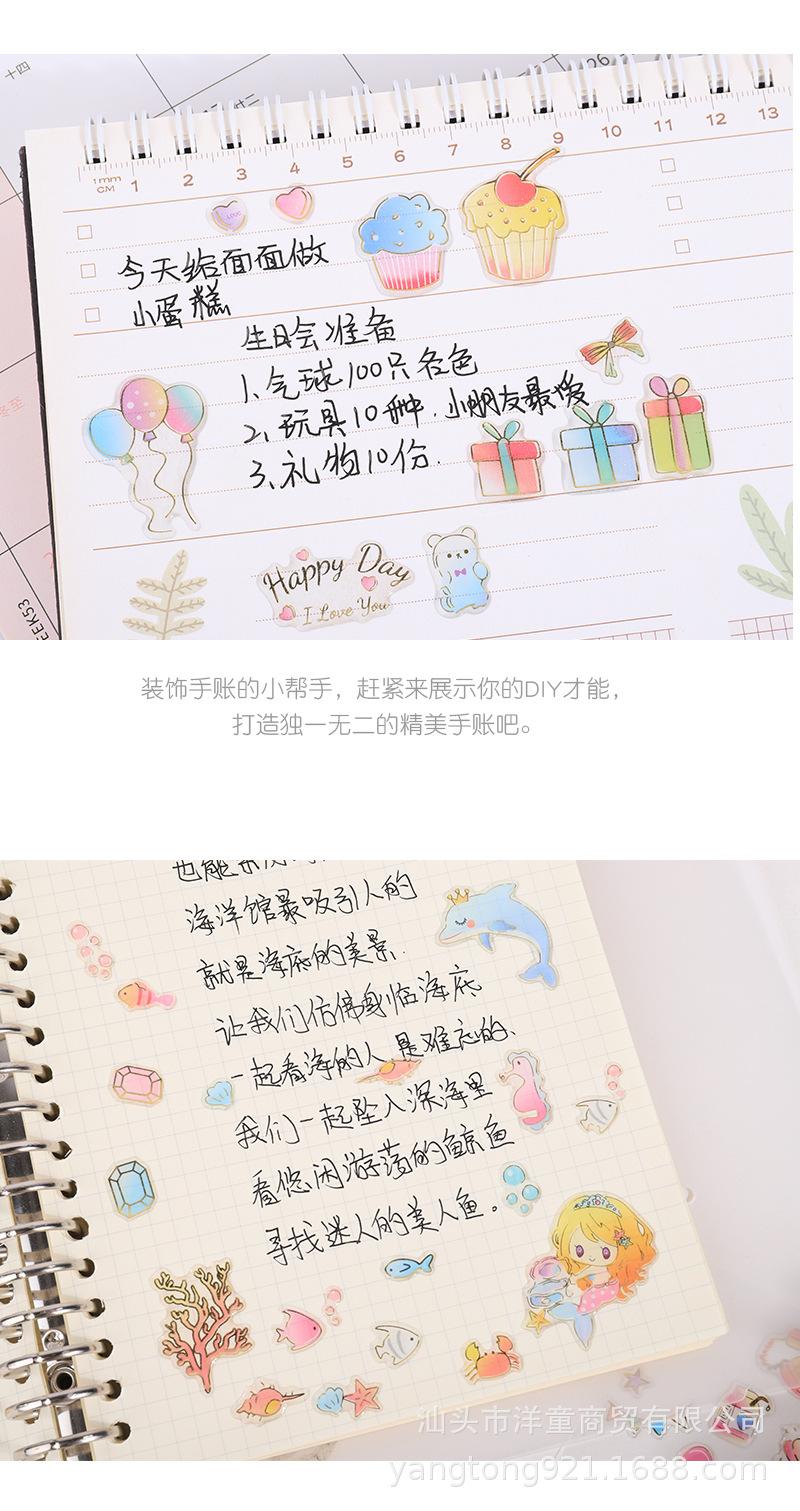 十四
26
1mm
CM 1 2 3 4 5 6 7 8 9 10 11 12 13
LOVE
今天给面面做
小蛋糕
生日会准备
1、气球100只各色
2、玩具10种、小朋友最爱
3、礼物10份.
冬至
EEK53
Happy Day
I Love You
装饰手账的小帮手，赶紧来展示你的DIY才能，
打造独一无二的精美手账吧。
海洋馆最吸引人的
就是海底的美景.
让我们仿佛身临海底
一起看海的人是难忘的、
我们一起坠入深海里
看悠闲游荡的鲸鱼
寻找迷人的美人鱼。
汕头市洋童商贸有限公司
yangtong921.1688.com